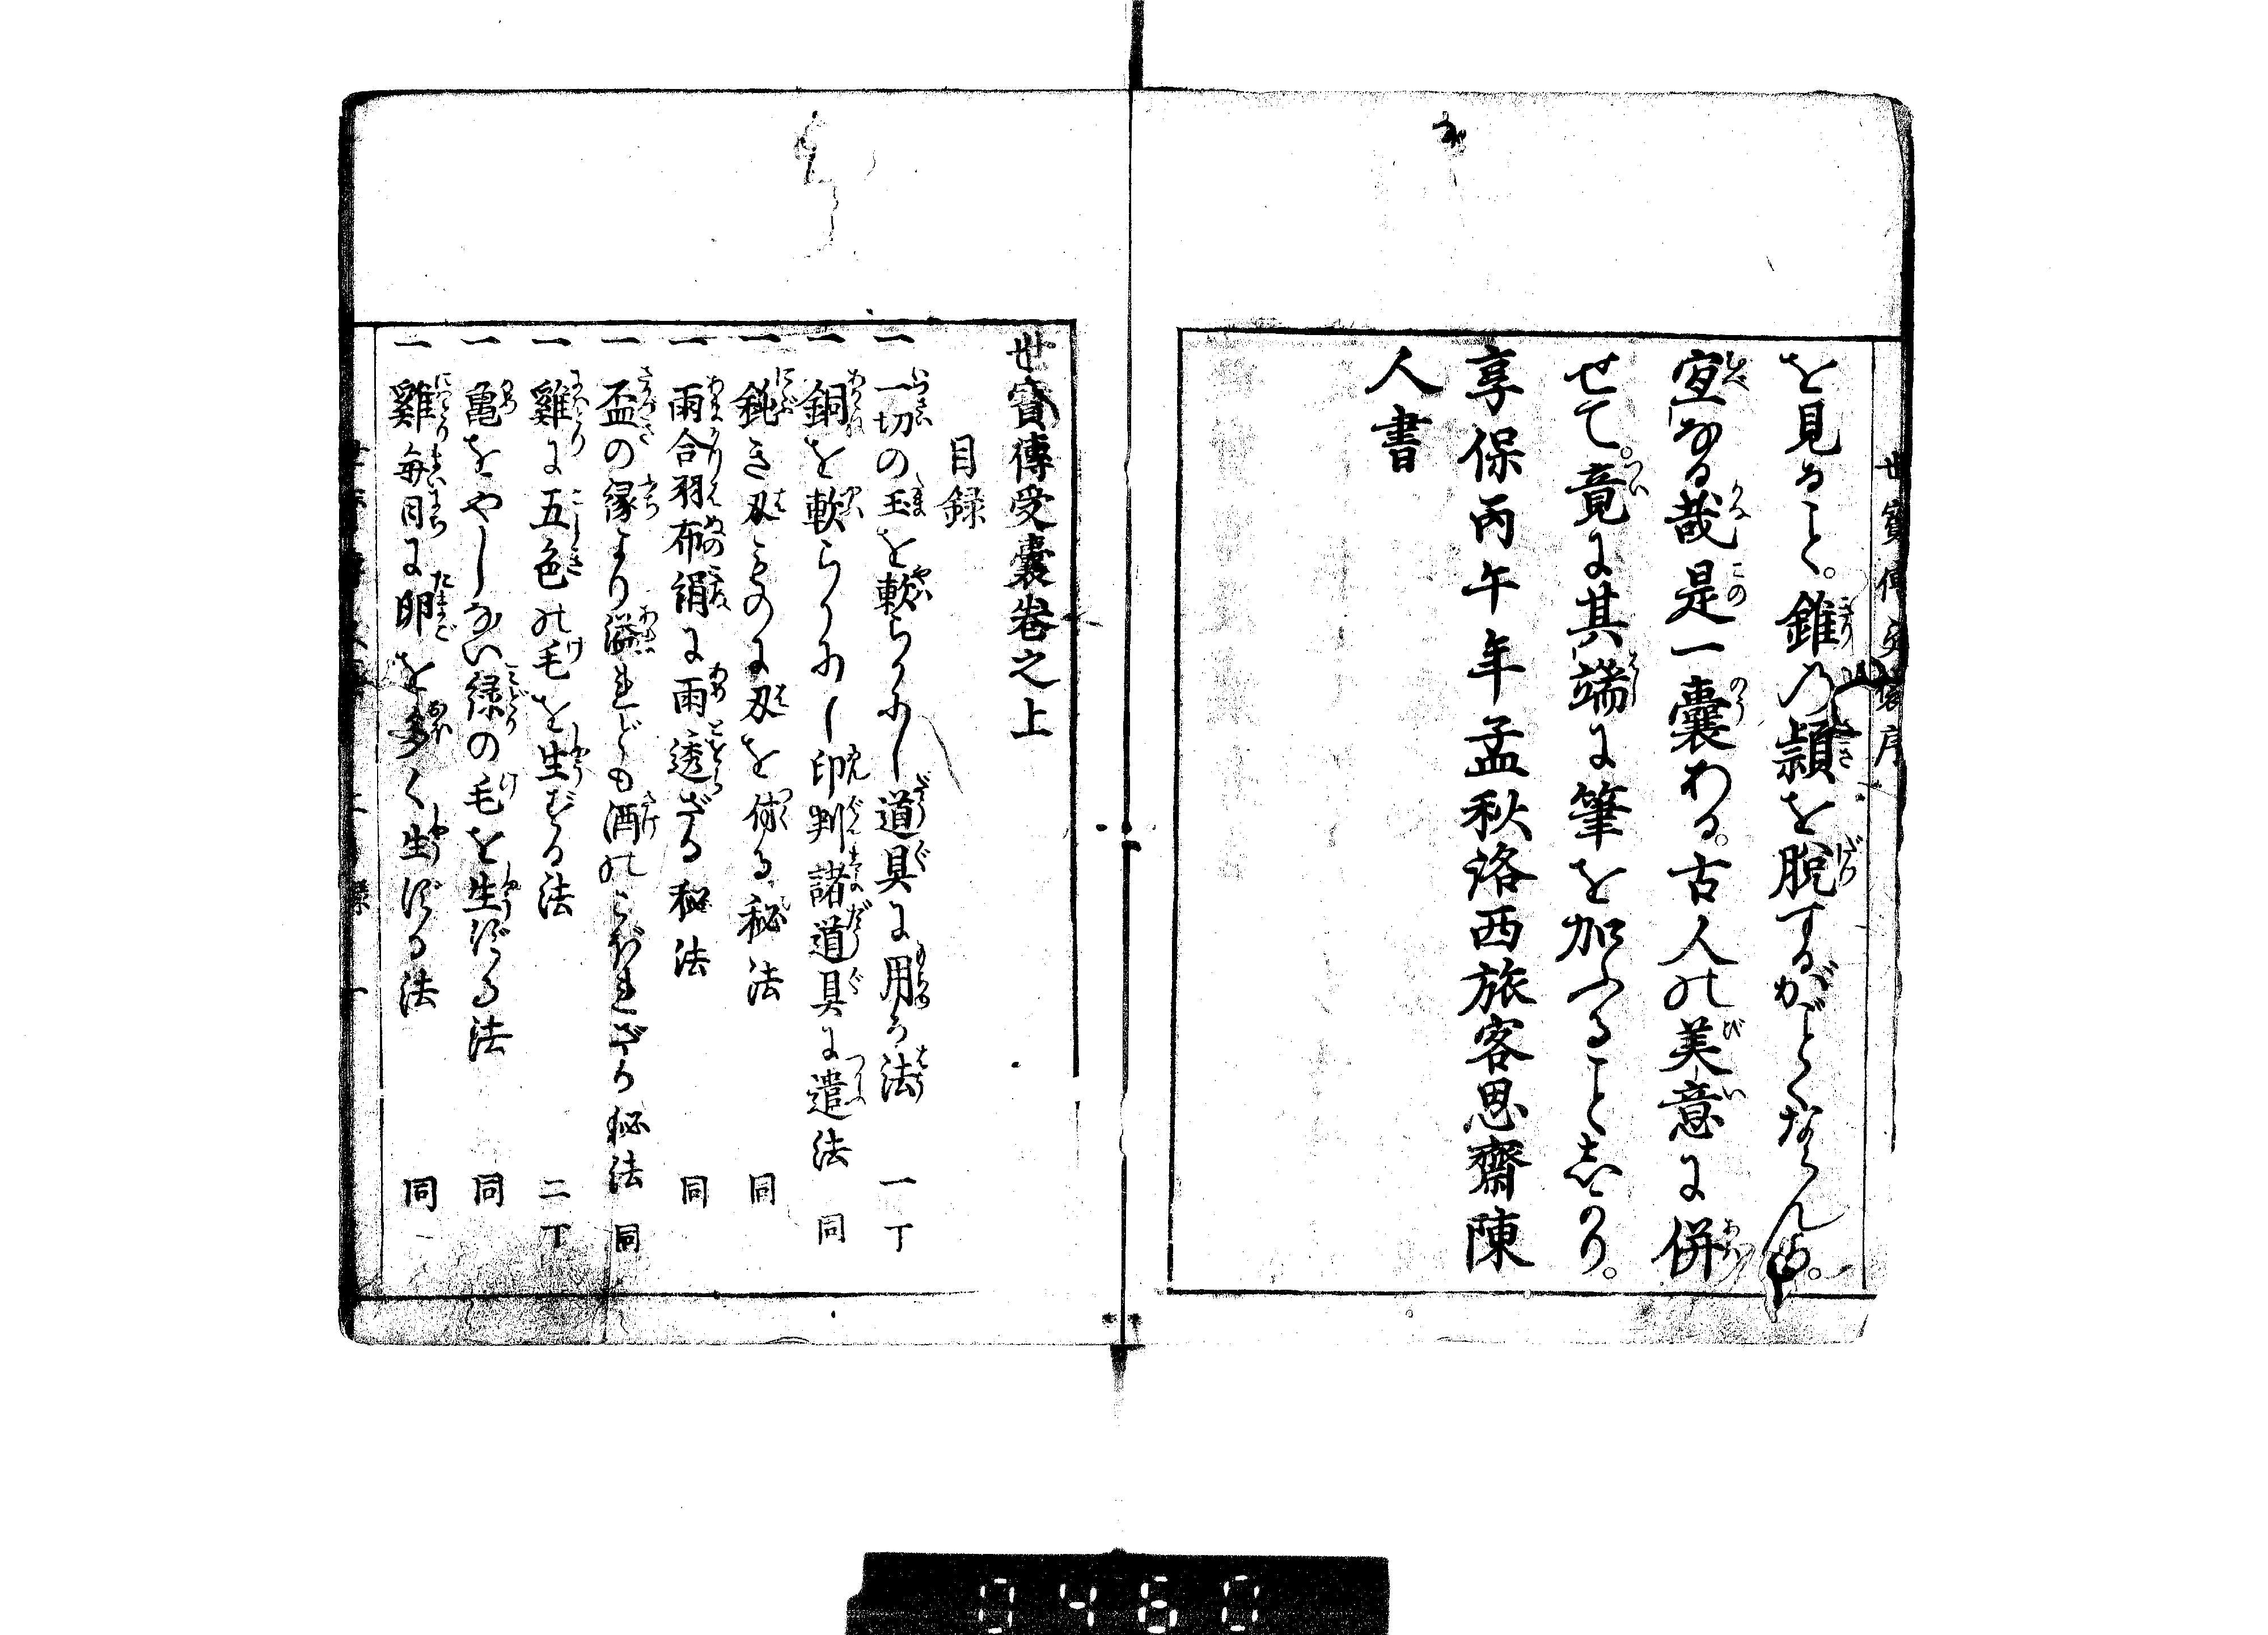 世寳傳受囊序
を見ること。錐の頴を脱するがごとくならんか。
宜なる哉是一囊ある。古人の美意に併
せて。竟に其端に筆を加ふることしかり。
享保丙午年孟秋洛西旅客思齋陳
人書
世寳傳受囊卷之上
目録
一 一切の玉を軟らかにし道具に用る法 一丁
一 銅を軟らかにし印判諸道具に遣法 同
一 鈍き刄ものに刄を付る秘法 同
一 雨合羽布絹に雨透ざる秘法 同
一 盃の縁より溢れども酒のこぼれざる秘法 同
一 雞に五色の毛を生ずる法 二丁
一 亀をやしない緑の毛を生ずる法 同
一 雞毎日に卵を多く生ずる法 同
0460